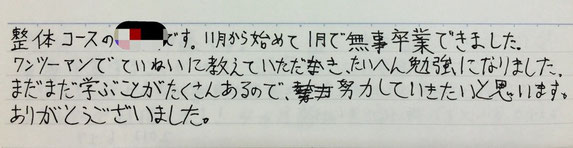 整体コースのです。11月から始めて1月で無事卒業できました。
ワンツーマンでていねいに教えていただき、たいへん勉強になりました。
まだまだ学ぶことがたくさんあるので、努力していきたいと思います。
ありがとうございました。